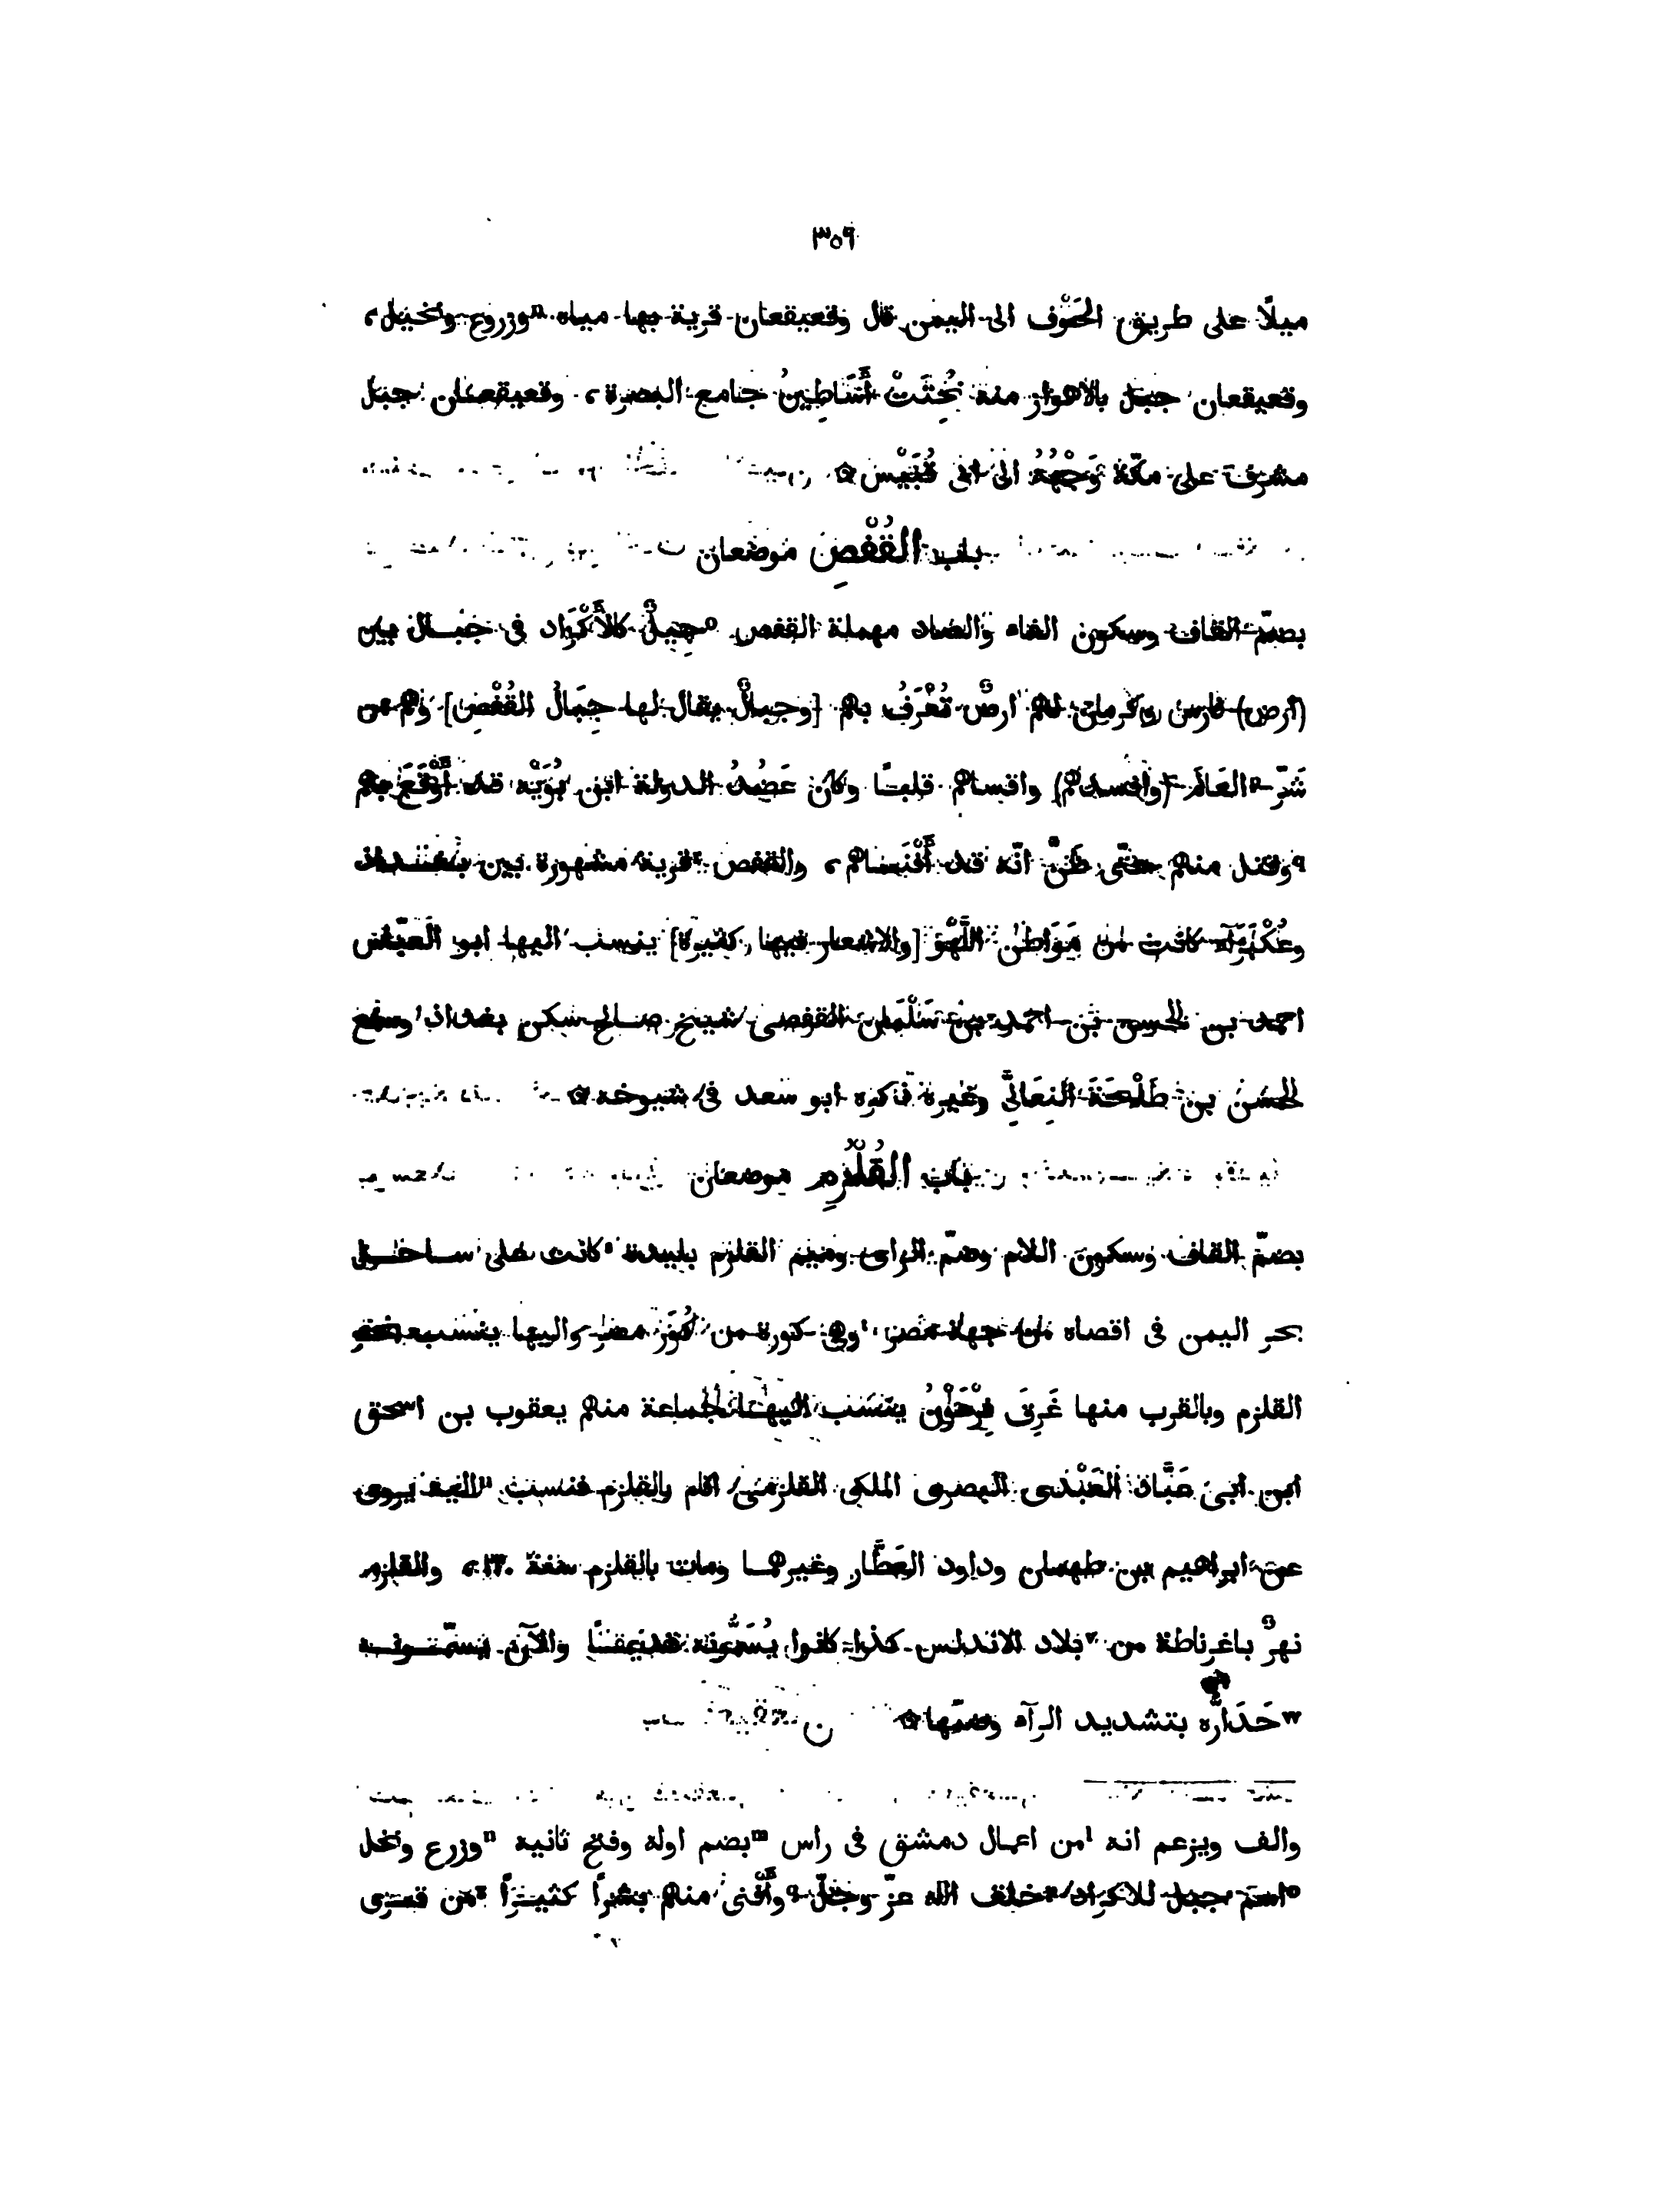 ٣٥٩
ميلًا على طريق الحَوْف الى اليمن قال وقعيقعان قرية بها مياه ⁿوزروع ونخيل،
وقعيقعان جبل بالاهواز منه نُحِتَتْ أَسَاطِينُ جامع البصرة، وقعيقعان جبل
مشرف على مكّة وَجْهُهُ الى ابى قُبَيْس ۞
باب القُفْصِ موضعان
بضمّ القاف وسكون الفاء والصاد مهملة القفص ᵒجِيلٌ كالأَكْرَاد فى جبال بين
(أرض) فارس وكرمان لهم ارضٌ تُعْرَفُ بهم [وجبالٌ يقال لها جِبَالُ القُفْصِ] وهم من
شَرِّ ᵖالعالَم (وافسدهم) واقساهم قلبًا وكان عَضُدُ الدولة ابن بُوَيْه قد أَوْقَعَ بهم
ᑫوقتل منهم حتّى ظَنَّ انّه قد أَفْنَاهم، والقفص ʳقرية مشهورة بين بغداد
وعُكْبَرَآء كانت من مَوَاطِن اللَّهْو [والاشعار فيها كثيرة] ينسب اليها ابو العبّاس
احمد بن الحسن بن احمد بن سَلْمَان القفصى شيخ صالح سكن بغداد وسمع
الحسن بن طَلْحَةَ النِعَالِيَّ وغيره ذكره ابو سعد فى شيوخه ۞
باب القُلْزُمِ موضعان
بضمّ القاف وسكون اللام وضمّ الزاى وميم القلزم بليدة ˢكانت على ساحل
بحر اليمن فى اقصاه من جهة مصر ᵗوهى كورة من كُوَر مصر واليها ينسب بحر
القلزم وبالقرب منها غَرِقَ فِرْعَوْنُ ينسب اليها جماعة منهم يعقوب بن اسحق
ابن ابى عَبَّاد العَبْدى البصرى المكى القلزمى اقام بالقلزم فنسب ᵘاليه يروى
عن ابراهيم بن طهمان وداود العَطَّار وغيرهما ومات بالقلزم سنة ٢٣٠، والقلزم
نهرٌ باغرناطة من ᵛبلاد الاندلس كذا كانوا يُسَمُّونه قديمًا والآن يسمّونه
ʷحَدَارُّه بتشديد الرآء وضمّها ۞
والف ويزعم انه ˡمن اعمال دمشق فى راس ᵐبضم اوله وفتح ثانيه ⁿوزرع ونخل
ᵒاسم جبل للاكراد ᵖخلف الله عزّ وجلّ ᑫوأَفْنى منهم بشرًا كثيرًا ʳمن قرى